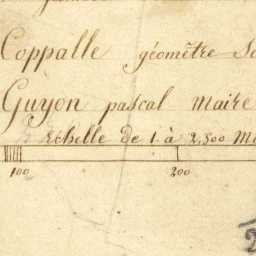 Coppalle géomètre
Guyon pascal Maire
Echelle de 1. à 2,500
100 200
2